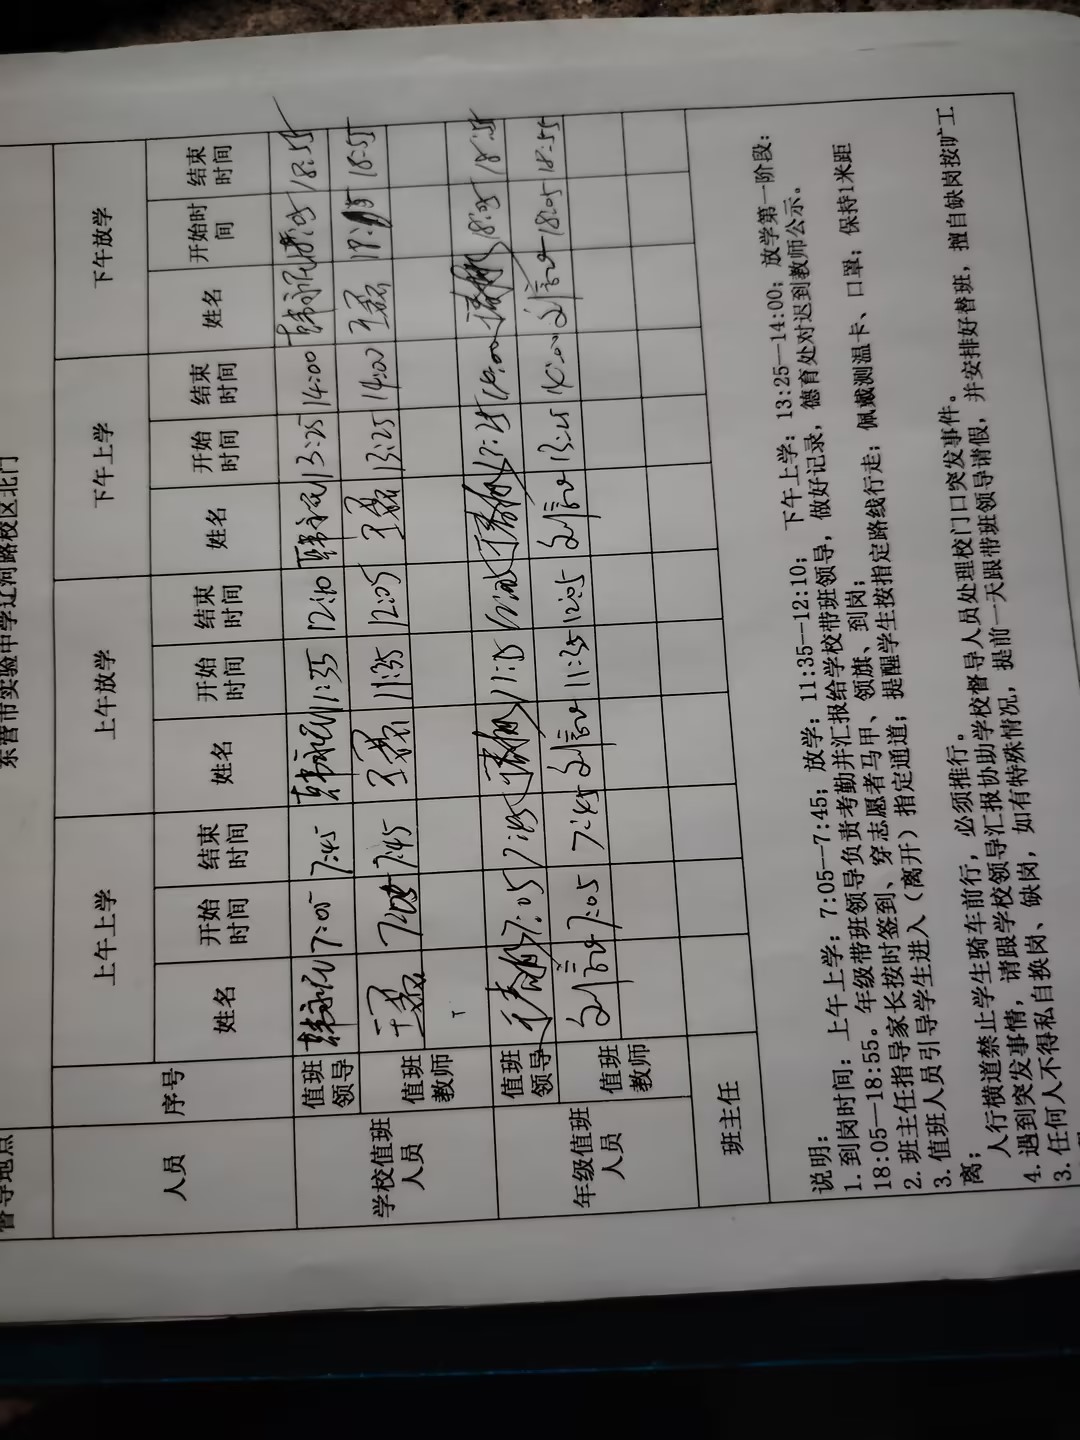 东营市实验中学辽河路校区北门
督导地点
人员 序号 上午上学 上午放学 下午上学 下午放学
姓名 开始时间 结束时间 姓名 开始时间 结束时间 姓名 开始时间 结束时间 姓名 开始时间 结束时间
学校值班人员 值班领导 7:05 7:45 11:35 12:10 13:25 14:00 18:55
值班教师 王磊 7:45 王磊 11:35 12:05 王磊 13:25 14:00 王磊 18:55
年级值班人员 值班领导 7:05 7:45 18:05 18:55
值班教师 7:05 7:45 11:35 12:05 13:25 14:00 18:05 18:55
班主任
说明:
1.到岗时间:上午上学:7:05--7:45;放学:11:35--12:10; 下午上学:13:25--14:00;放学第一阶段:
18:05--18:55。年级带班领导负责考勤并汇报给学校带班领导,做好记录,德育处对迟到教师公示。
2.班主任指导家长按时签到、穿志愿者马甲、领旗、到岗;
3.值班人员引导学生进入(离开)指定通道;提醒学生按指定路线行走;佩戴测温卡、口罩;保持1米距
离;
人行横道禁止学生骑车前行,必须推行。
4.遇到突发事情,请跟学校领导汇报协助学校督导人员处理校门口突发事件。
3.任何人不得私自换岗、缺岗,如有特殊情况,提前一天跟带班领导请假,并安排好替班,擅自缺岗按旷工